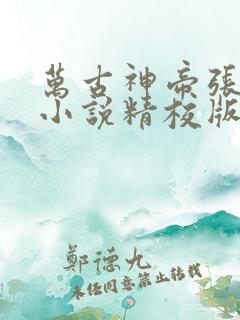 萬古神帝張
小說精校版
鄭德九
未經同意禁止轉載